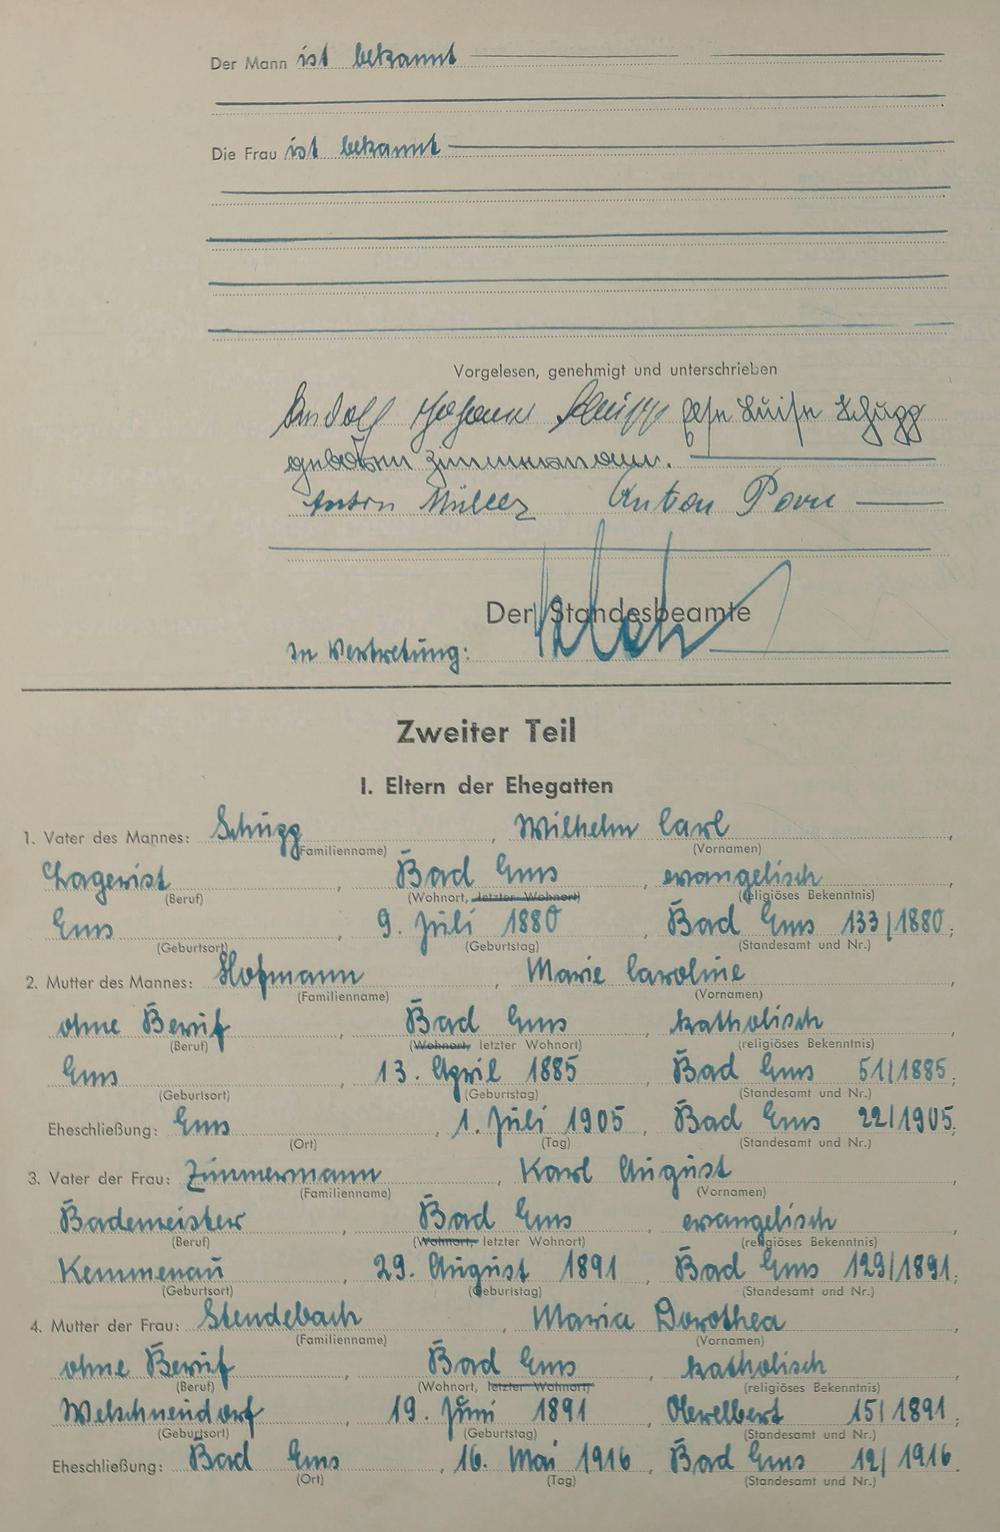 Der Mann ist bekannt
Die Frau ist bekannt
Vorgelesen, genehmigt und unterschrieben
Rudolf Johann Schupp Luise Schupp
geborene Zimmermann.
Anton Müller Anton
Der Standesbeamte
In Vertretung:
Zweiter Teil
I. Eltern der Ehegatten
1. Vater des Mannes: Schupp, Wilhelm Carl,
(Familienname) (Vornamen)
Lagerist, Bad Ems, evangelisch
(Beruf) (Wohnort, letzter Wohnort) (religiöses Bekenntnis)
Ems, 9. Juli 1880, Bad Ems 133/1880;
(Geburtsort) (Geburtstag) (Standesamt und Nr.)
2. Mutter des Mannes: Hofmann, Marie Caroline,
(Familienname) (Vornamen)
ohne Beruf, Bad Ems, katholisch,
(Beruf) (Wohnort, letzter Wohnort) (religiöses Bekenntnis)
Ems, 13. April 1885, Bad Ems 51/1885;
(Geburtsort) (Geburtstag) (Standesamt und Nr.)
Eheschließung: Ems, 1. Juli 1905, Bad Ems 22/1905.
(Ort) (Tag) (Standesamt und Nr.)
3. Vater der Frau: Zimmermann, Karl August,
(Familienname) (Vornamen)
Bademeister, Bad Ems, evangelisch,
(Beruf) (Wohnort, letzter Wohnort) (religiöses Bekenntnis)
Kemmenau, 29. August 1891, Bad Ems 129/1891;
(Geburtsort) (Geburtstag) (Standesamt und Nr.)
4. Mutter der Frau: Stendebach, Maria Dorothea,
(Familienname) (Vornamen)
ohne Beruf, Bad Ems, katholisch,
(Beruf) (Wohnort, letzter Wohnort) (religiöses Bekenntnis)
Welschneudorf, 19. Juni 1891, Oberelbert 15/1891;
(Geburtsort) (Geburtstag) (Standesamt und Nr.)
Eheschließung: Bad Ems, 16. Mai 1916, Bad Ems 12/1916.
(Ort) (Tag) (Standesamt und Nr.)